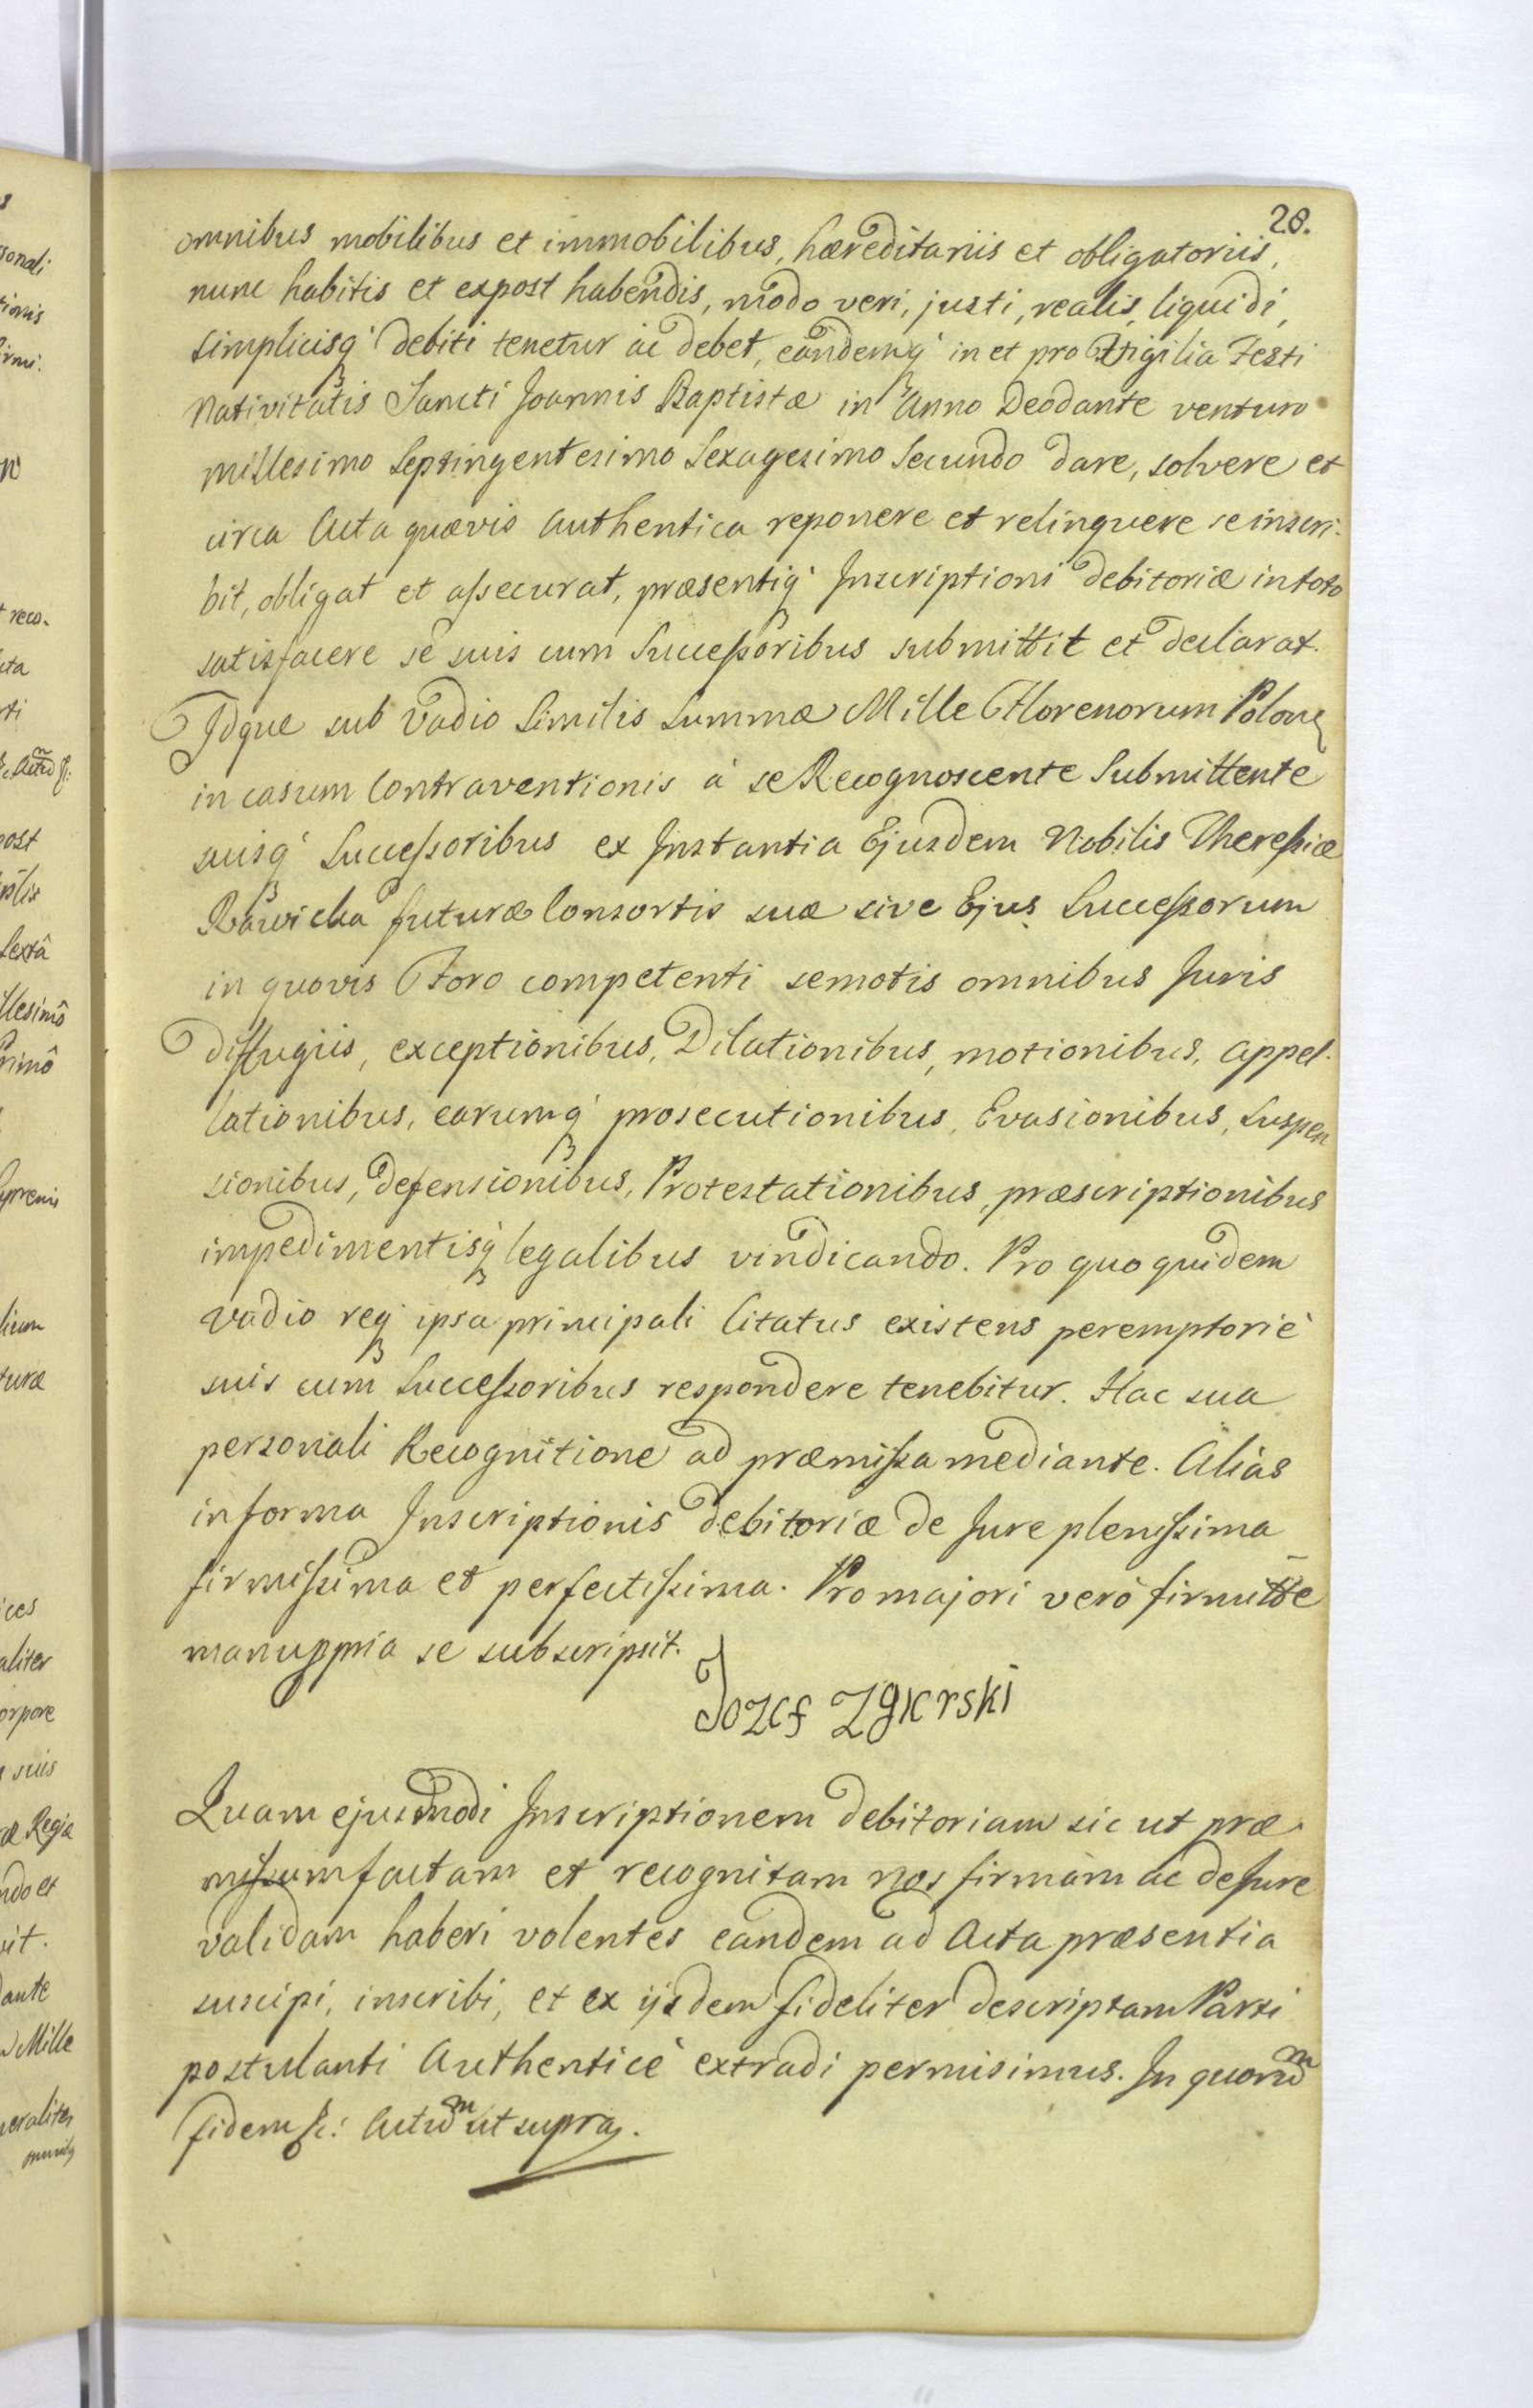 28.
omnibus mobilibus et immobilibus, hæreditariis et obligatoriis,
nunc habitis et expost habendis, modo veri, justi, realis, liquidi,
simplicisq́ʒ debiti tenetur ac debet, eandemq́ʒ in et pro Vigilia Festi
Nativitatis Sancti Joannis Baptistæ in Anno Deodante venturo
millesimo Septingentesimo Sexagesimo Secundo dare, solvere et
circa Acta quævis Authentica reponere et relinquere se inscri-
bit, obligat et assecurat, præsentiq́ʒ Inscriptioni debitoriæ in toto
satisfacere se suis cum Successoribus submittit et declarat.
Idque sub vadio Similis Summæ Mille Florenorum Polon
in casum Contraventionis à se Recognoscente Submittente
suisq́ʒ Successoribus ex Instantia Ejusdem Nobilis Theressiæ
Rawicka futuræ Consortis suæ sive Ejus Successorum
in quovis Foro competenti semotis omnibus Juris
Diffugiis, exceptionibus, Dilationibus, motionibus, appel-
lationibus, earumq́ʒ prosecutionibus, Evasionibus, Suspen
sionibus, defensionibus, Protestationibus, præscriptionibus
impedimentisq́ʒ legalibus vindicando. Pro quo quidem
vadio req́ʒ ipsa principali Citatus existens peremptoriè
suis cum Successoribus respondere tenebitur. Hac sua
personali Recognitione ad præmissa mediante. Aliàs
in forma Inscriptionis debitoriæ de Jure plenissima
firmissima et perfectissima. Pro majori verò firmitte
manuppria se subscripsit.
Jozef Zgierski
Quam ejusmodi Inscriptionem debitoriam sic ut præ-
missum factam et recognitam nos firmam ac de Jure
validam haberi volentes eandem ad Acta præsentia
suscipi, inscribi, et ex ijsdem fideliter descriptam Parti
postulanti Authenticè extradi permisimus. In quoruᵐ
fidem &c: Actuᵐ ut supra.